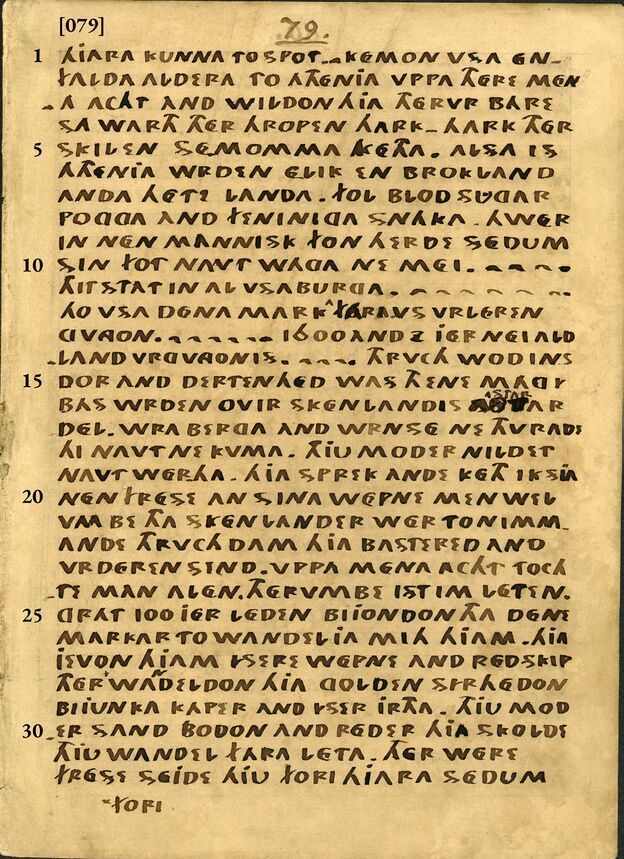 [079] 79.
1 HIARA KUNNA TO SPOT. – KEMON VSA EN-
FALDA ALDERA TO ATHENIA VPPA THERE MEN
- A ACHT AND WILDON HIA THERVR BARE
SA WARTH THER HROPEN HARK – HARK THER
5 SKILEN SEMOMMA KETHA. ALSA IS
ATHENIA WRDEN ELIK EN BROKLAND
ANDA HETE LANDA. FOL BLOD SUGAR
POGGA AND FENINIGA SNAKA. HWER
IN NEN MANNISK FON HERDE SEDUM
10 SIN FOT NAVT WAGA NE MEI. - - - -
THIT STAT IN AL VSA BURGA. - - - - - - -
HO VSA DENAMARKA FARA VS VRLEREN
GVNGON. - - - - - - 1600 AND 2 IER NEI ALD
- LAND VRGVNGON IS. - - - . THRVCH WODINS
15 DOR AND DERTENHED WAS THENE MAGY
BAS WRDEN OVIR SKENLANDIS ASTAR
DEL. WRA BERGA AND WRN SE NE THVRADE
HI NAVT NE KVMA. THIU MODER NILDET
NAVT WERHA. HIA SPREK ANDE KETH IK SIA
20 NEN FRESE AN SINA WEPNE MEN WEL
VMBE THA SKENLANDER WER TO NIMM-
ANDE THRVCHDAM HIA BASTERED AND
VRDEREN SIND. VPPA MENA ACHT TOCH-
TE MAN ALEN. THERVMBE IST IM LETEN.
25 GRAT 100 IER LEDEN BIIONDON THA DENE
MARKAR TO WANDELIA MITH HIAM. HIA
IEVON HIAM YSERE WEPNE AND REDSKIP
THER WANDELDON HIA GOLDEN SYRHEDON
BIIUNKA KAPER AND YSER IRTHA. THIU MOD
30 - ER SAND BODON AND REDER HIA SKOLDE
THIU WANDEL FARA LETA. THER WERE
FRESE SEIDE HIU FORI HIARA SEDUM
FORI